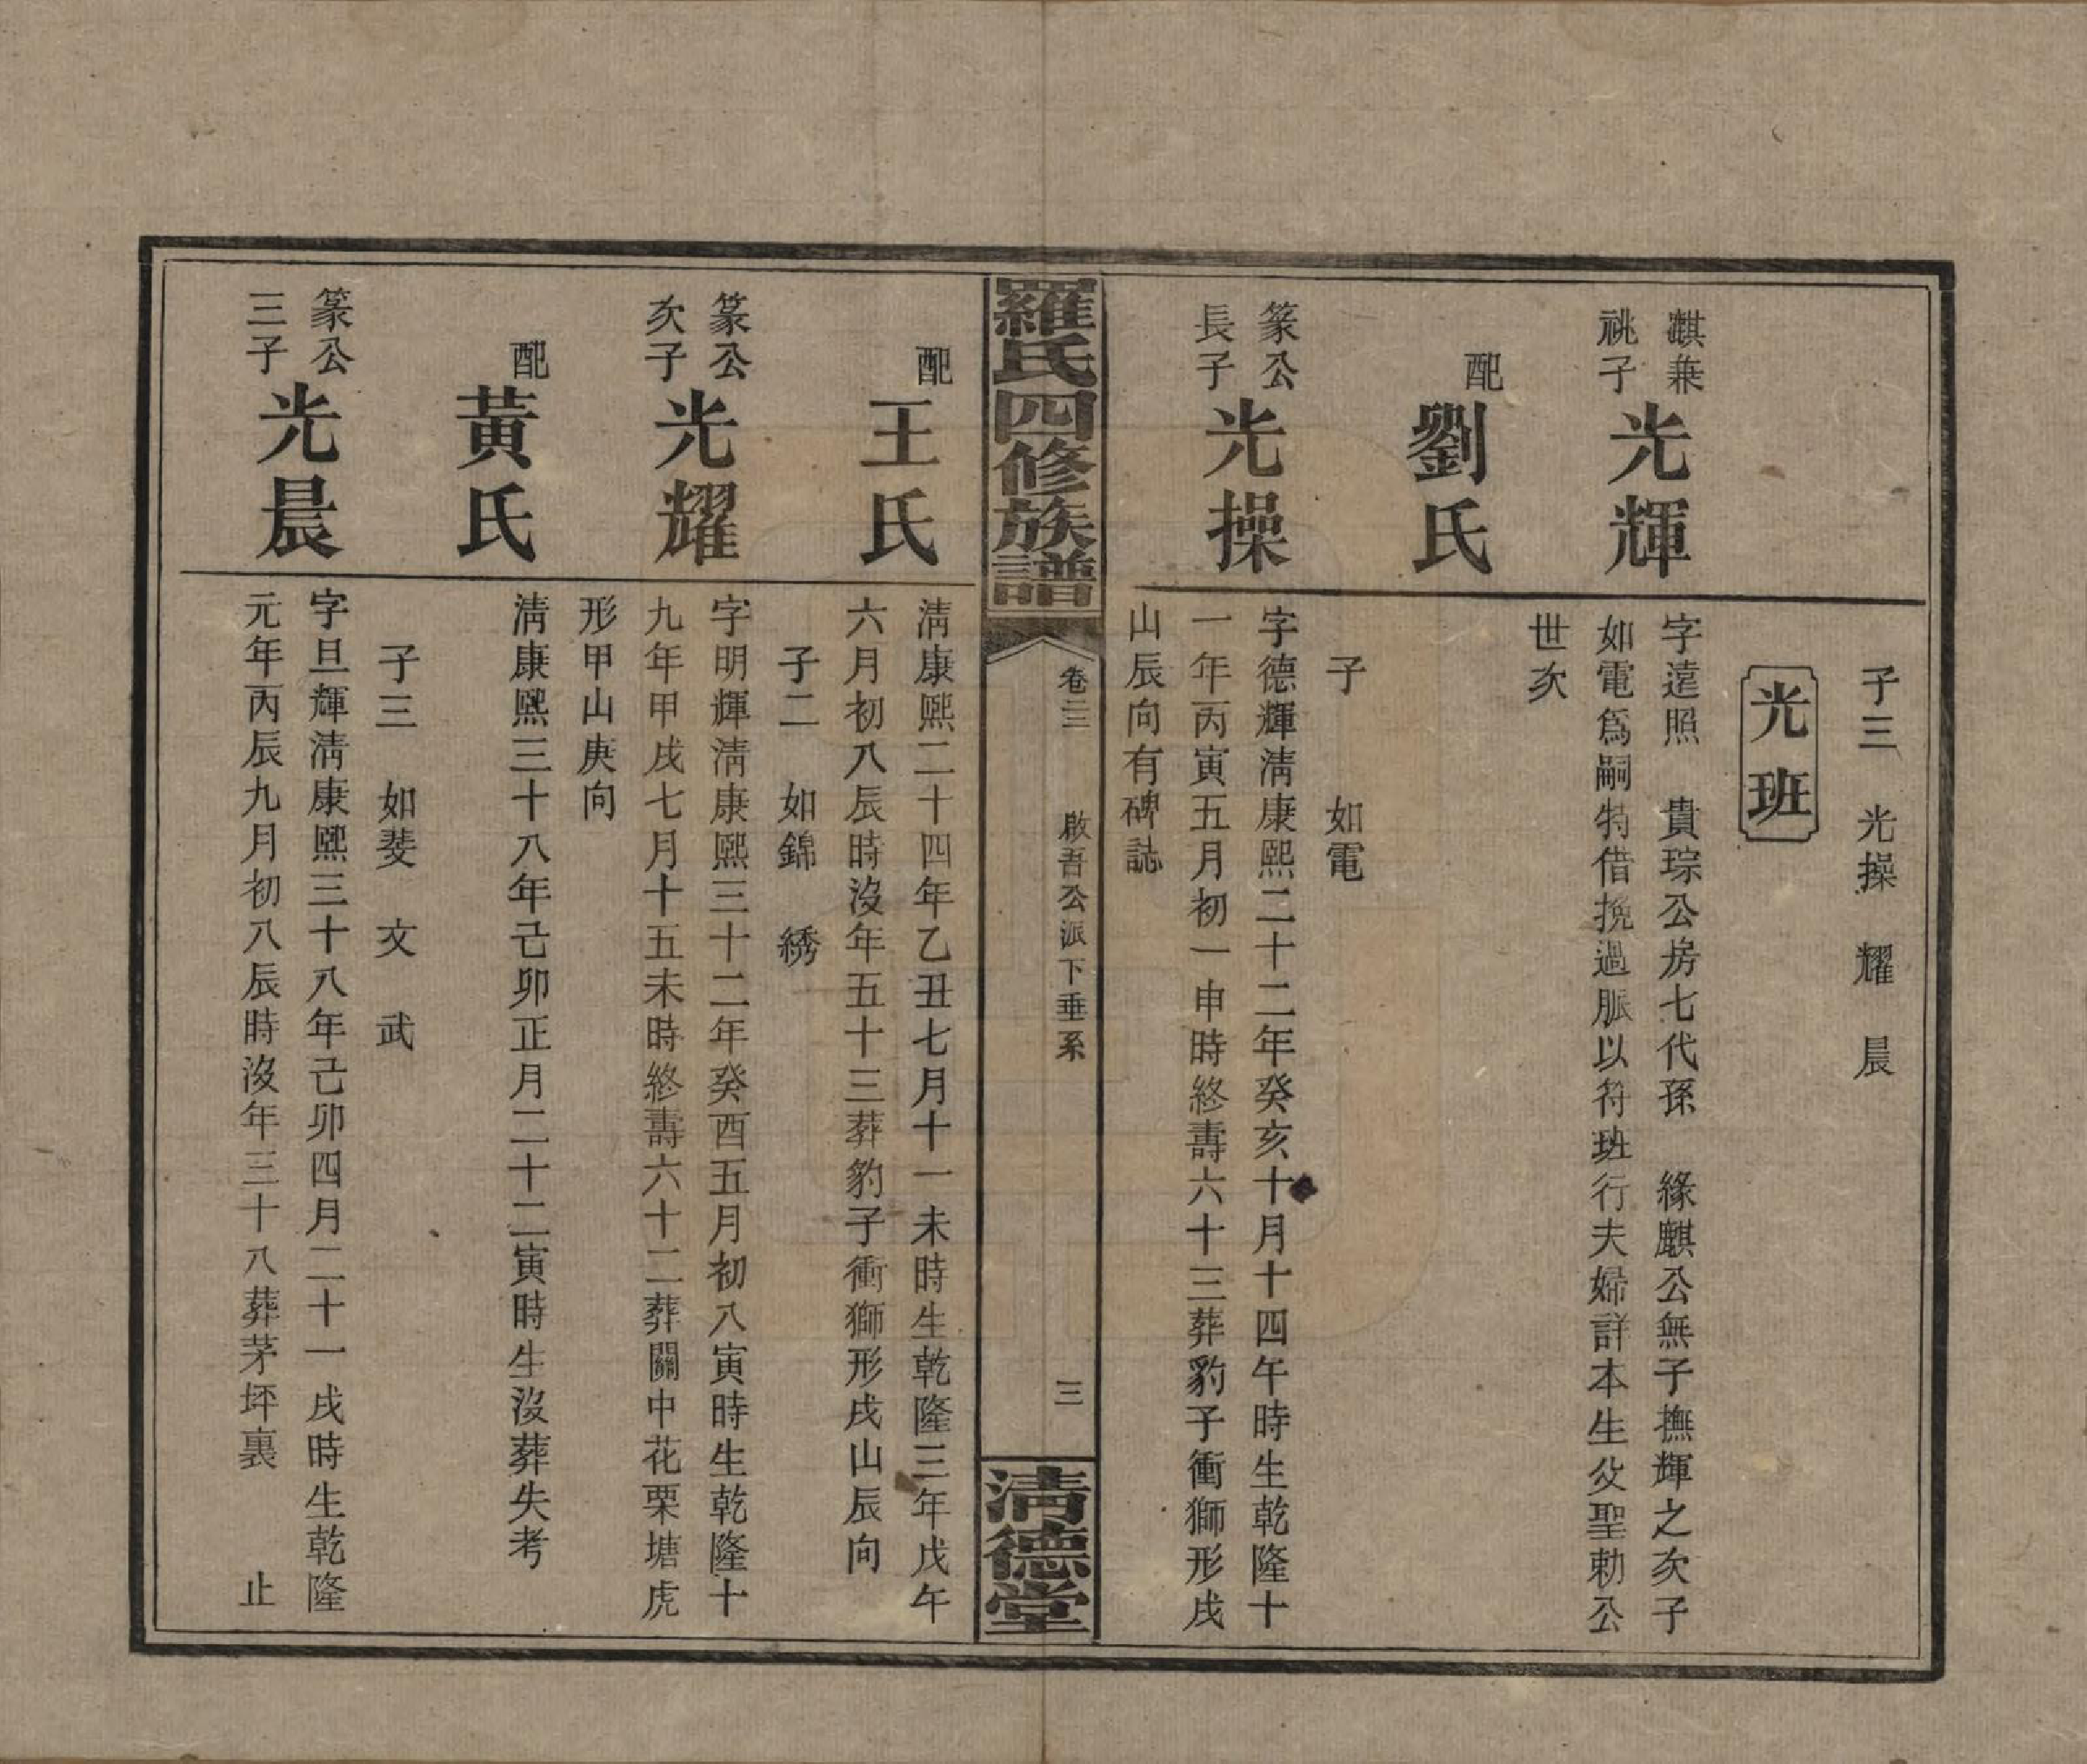 子三　光操　耀　晨
光班
麒兼
祧子
光輝
字遠照　貴琮公房七代孫　緣麒公無子撫輝之次子
如電爲嗣特借挽過脈以符班行夫婦詳本生父聖勅公
世次
配
劉氏
子　如電
篆公
長子
光操
字德輝淸康熙二十二年癸亥十月十四午時生乾隆十
一年丙寅五月初一申時終壽六十三葬豹子衝獅形戌
山辰向有碑誌
羅氏四修族譜
卷二三
啟吾公派下垂系
三
淸德堂
配
王氏
淸康熙二十四年乙丑七月十一未時生乾隆三年戊午
六月初八辰時沒年五十三葬豹子衝獅形戌山辰向
子二　如錦　綉
篆公
次子
光耀
字明輝淸康熙三十二年癸酉五月初八寅時生乾隆十
九年甲戌七月十五未時終壽六十二葬關中花栗塘虎
形甲山庚向
配
黃氏
淸康熙三十八年己卯正月二十二寅時生沒葬失考
子三　如斐　文　武
篆公
三子
光晨
字旦輝淸康熙三十八年己卯四月二十一戌時生乾隆
元年丙辰九月初八辰時沒年三十八葬茅坪裏　止